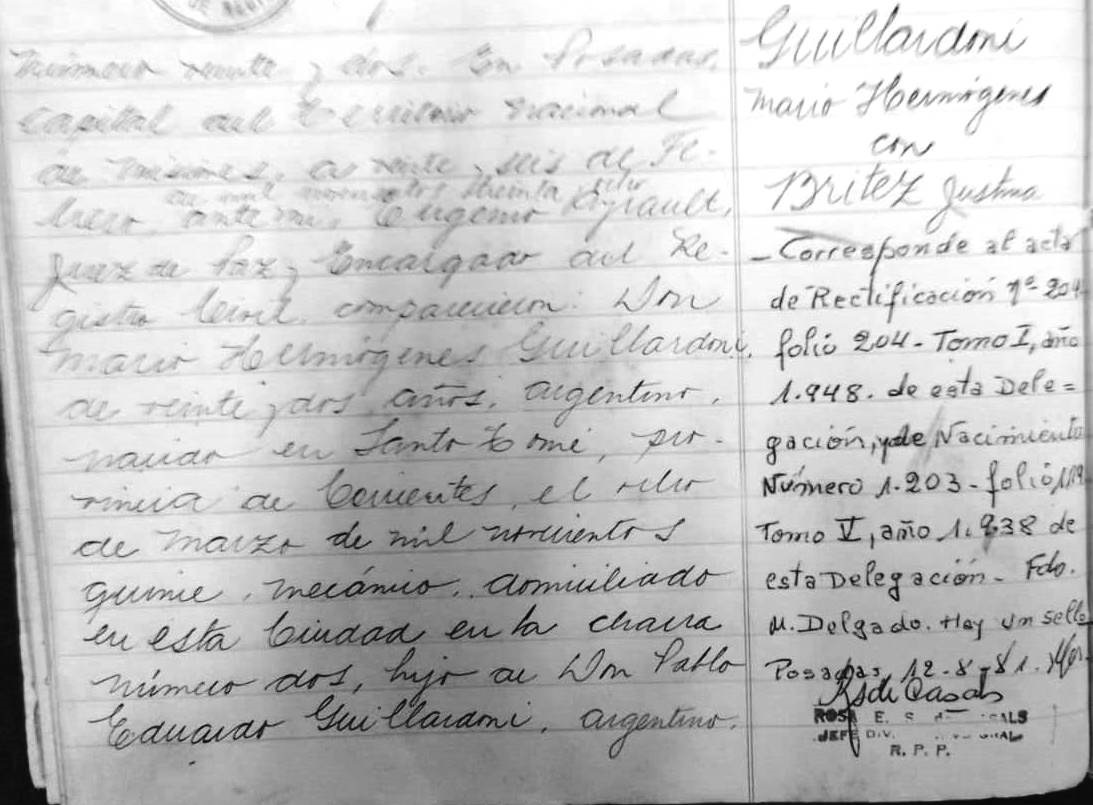 Número veinte y dos. En Posadas,
Capital del Territorio Nacional
de Misiones, a veinte y seis de Fe-
de mil novecientos treinta y ocho
brero, ante mi, Eugenio
Juez de Paz y Encargado del Re-
gistro Civil, comparecieron: Don
Mario Hermógenes Guillardoni,
de veinte y dos años, argentino,
nacido en Santo Tomé, pro-
vincia de Corrientes, el ocho
de Marzo de mil novecientos
quince, mecánico, domiciliado
en esta Ciudad en la chacra
número dos, hijo de Don Pablo
Eduardo Guillardoni, argentino.
Guillardoni
Mario Hermógenes
con
BRITEZ Justina
- Corresponde al acta
de Rectificación nº 204
folio 204 - Tomo I, año
1.948. de esta Dele=
gación, y de Nacimiento
Número 1.203 - folio 119
Tomo V, año 1.938 de
esta Delegación - Fdo.
M. Delgado. Hay un sello
Posadas, 12-8-81.
ROSA E. S. de
JEFE DIV.
R. P. P.